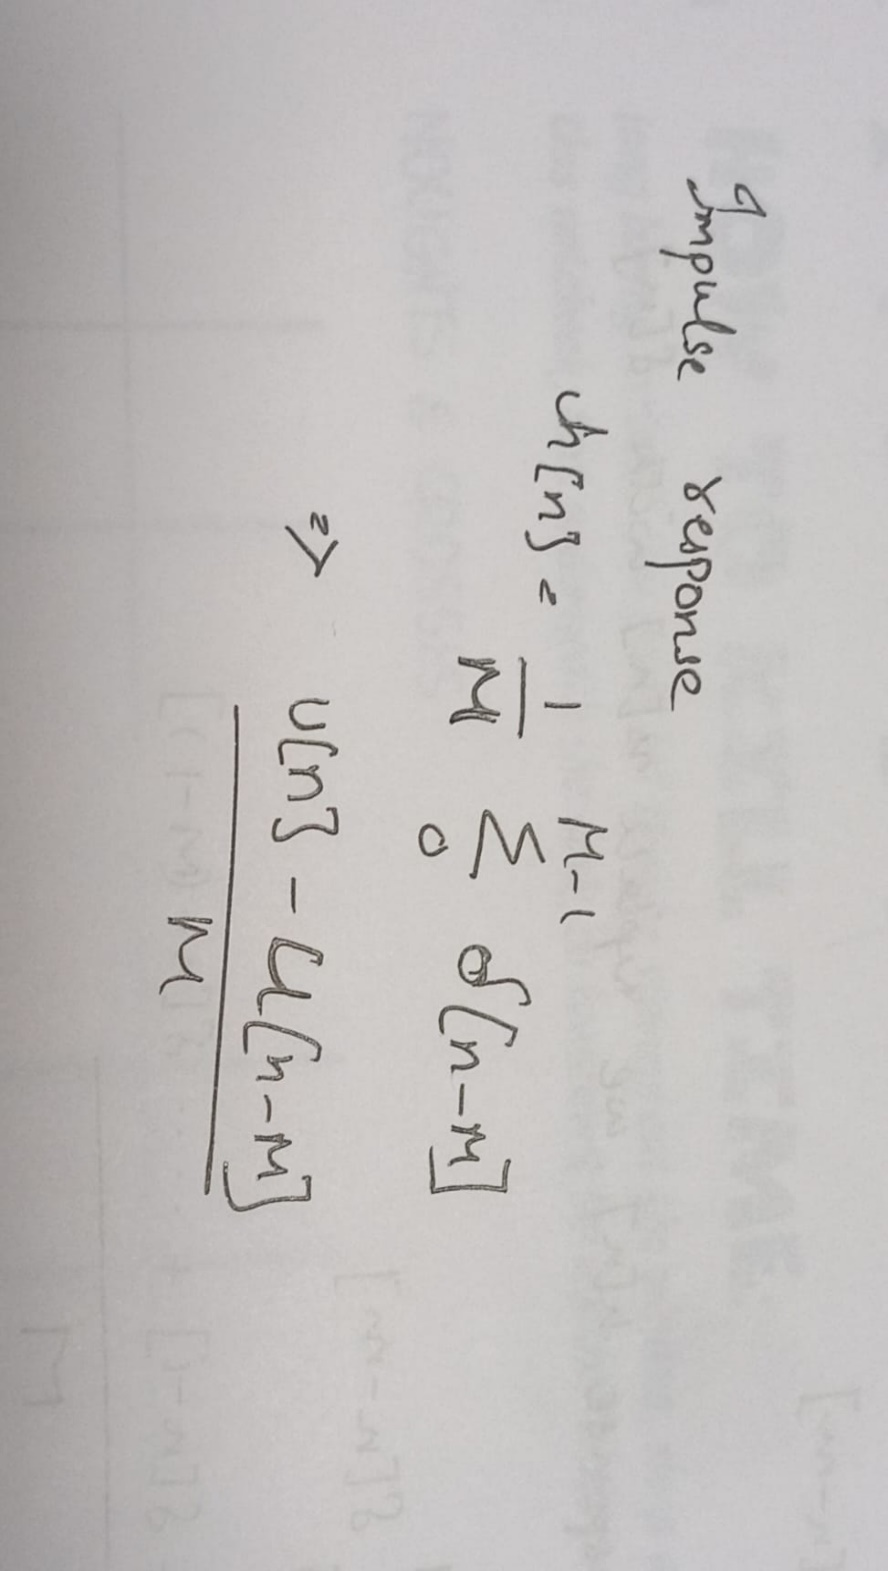 Impulse response
h[n] = 1/M M-1 Σ 0 δ[n-M]
⇒ u[n] - u[n-M] / M